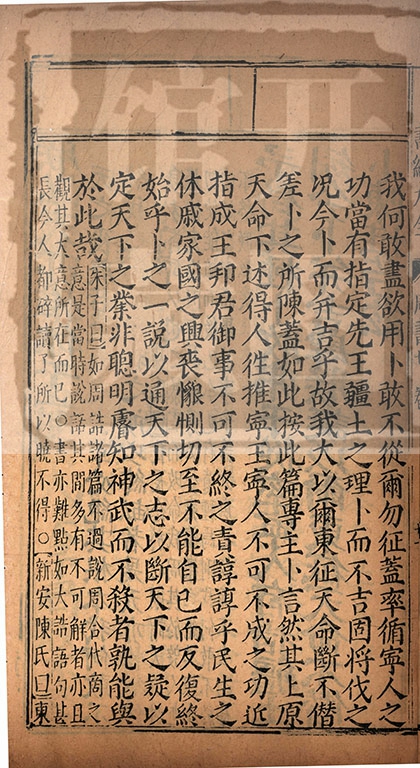 我何敢盡欲用卜敢不從爾勿征蓋率循寧人之
功當有指定先王疆土之理卜而不吉固將伐之
况今卜而幷吉乎故我大以爾東征天命斷不僭
差卜之所陳蓋如此按此篇專主卜言然其上原
天命下述得人徃推寧王寧人不可不成之功近
指成王邦君御事不可不終之責諄諄乎民生之
休戚家國之興喪懇惻切至不能自已而反復終
始乎卜之一說以通天下之志以斷天下之疑以
定天下之業非聰明睿知神武而不殺者孰能與
於此哉朱子曰如周誥諸篇不過說周合代商之
意是當時說話其間多有不可解者亦且
觀其大意所在而已○書亦難點如大誥語句甚
長今人都碎讀了所以曉不得○新安陳氏曰東